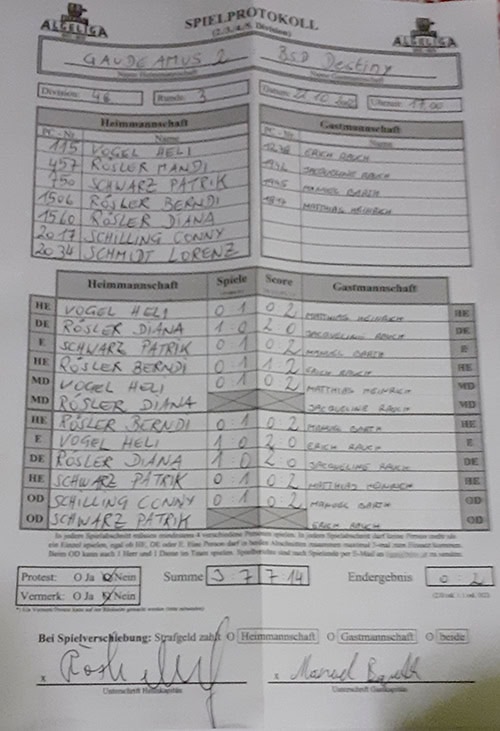 ALGELIGA
SPIELPROTOKOLL
ALGELIGA
(2./3./4./6. Division)
GAUDEAMUS 2 BSD Destiny
Name Heimmannschaft Name Gastmannschaft
Division: 4 Runde: 3 Datum: 10 Uhrzeit: 17.00
Heimmannschaft Gastmannschaft
PC - Nr. Name PC - Nr. Name
115 VOGEL HELI ERICH RAUCH
457 RÖSLER MANDI JACQUELINE RAUCH
750 SCHWARZ PATRIK MANUEL BARTH
1506 RÖSLER BERNDI MATTHIAS HEINRICH
1560 RÖSLER DIANA
2017 SCHILLING CONNY
2034 SCHMIDT LORENZ
Heimmannschaft Spiele Score Gastmannschaft
HE VOGEL HELI 0 1 0 2 MATTHIAS HEINRICH HE
DE RÖSLER DIANA 1 0 2 0 JACQUELINE RAUCH DE
E SCHWARZ PATRIK 0 1 0 2 MANUEL BARTH E
HE RÖSLER BERNDI 0 1 1 2 ERICH RAUCH HE
MD VOGEL HELI 0 1 0 2 MATTHIAS HEINRICH MD
MD RÖSLER DIANA JACQUELINE RAUCH MD
HE RÖSLER BERNDI 0 : 1 0 : 2 MANUEL BARTH HE
E VOGEL HELI 1 : 0 2 : 0 ERICH RAUCH E
DE RÖSLER DIANA 1 0 2 : 0 JACQUELINE RAUCH DE
HE SCHWARZ PATRIK 0 1 0 : 2 MATTHIAS HEINRICH HE
OD SCHILLING CONNY 0 : 1 0 : 2 MANUEL BARTH OD
OD SCHWARZ PATRIK ERICH RAUCH OD
In jedem Spielabschnitt müssen mindestens 4 verschiedene Personen spielen. In jedem Spielabschnitt darf keine Person mehr als
ein Einzel spielen, egal ob HE, DE oder E. Eine Person darf in beiden Abschnitten zusammen maximal 3-mal zum Einsatz kommen.
Beim OD kann auch 1 Herr und 1 Dame im Team spielen. Spielberichte sind nach Spielende per E-Mail an
Protest: O Ja Nein Summe 3 : 7 7 : 14 Endergebnis 0 : 2
Vermerk: O Ja Nein
Bei Spielverschiebung: Strafgeld zahlt O Heimmannschaft O Gastmannschaft O beide
x x Manuel Barth
Unterschrift Heimkapitän Unterschrift Gastkapitän